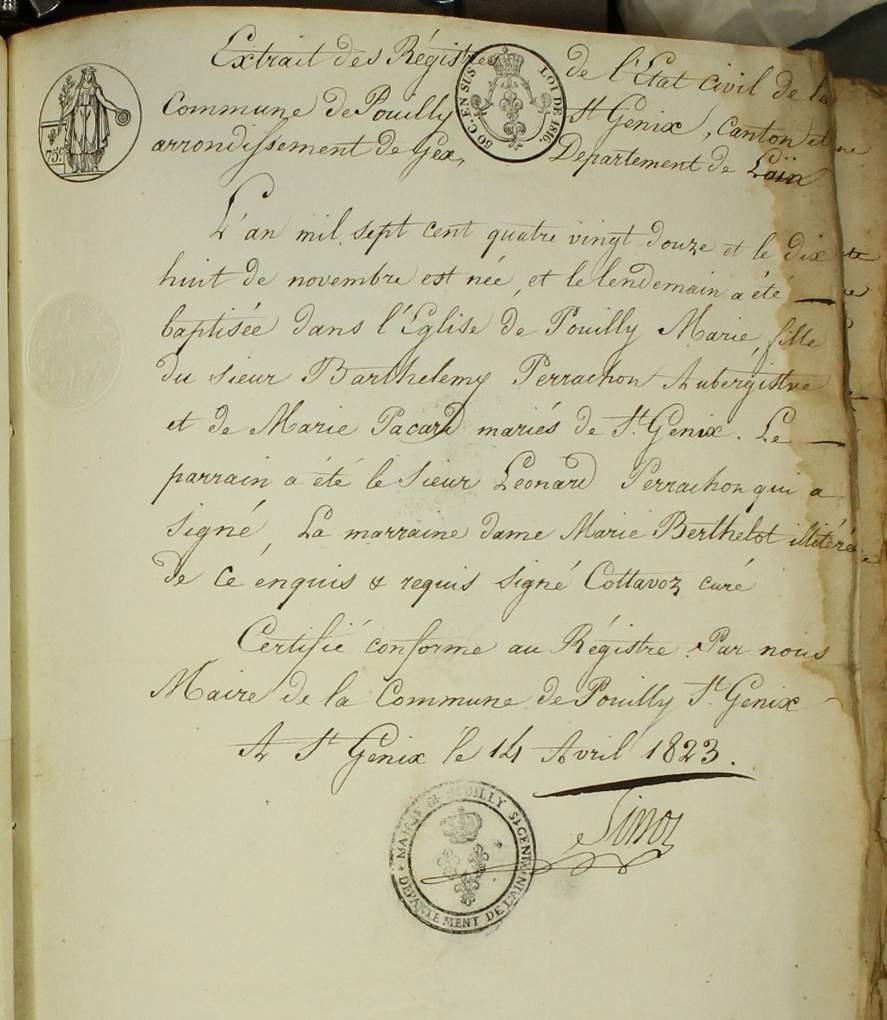 Extrait des Régistres de l'Etat civil de la
Commune de Pouilly St Genix, canton et
arrondissement de Gex, Departement de Laïn
75 c.
50 C. EN SUS
LOI DE 1816.
L'an mil sept cent quatre vingt douze et le dix
huit de novembre est née, et le lendemain a été
baptisée dans l'Eglise de Pouilly Marie, fille
du sieur Barthelemy Perrachon Aubergistre
et de Marie Pacard mariés de St. Genix. Le
parrain a été le sieur Léonard Perrachon qui a
signé, La marraine dame Marie Berthelot illitérée
de ce énquis & requis signé Cottavoz curé
Certifié conforme au Régistre. Par nous
Maire de la Commune de Pouilly St. Genix
A St Genix le 14 Avril 1823.
MAIRIE DE POUILLY St GENIX
DEPARTEMENT DE L'AIN